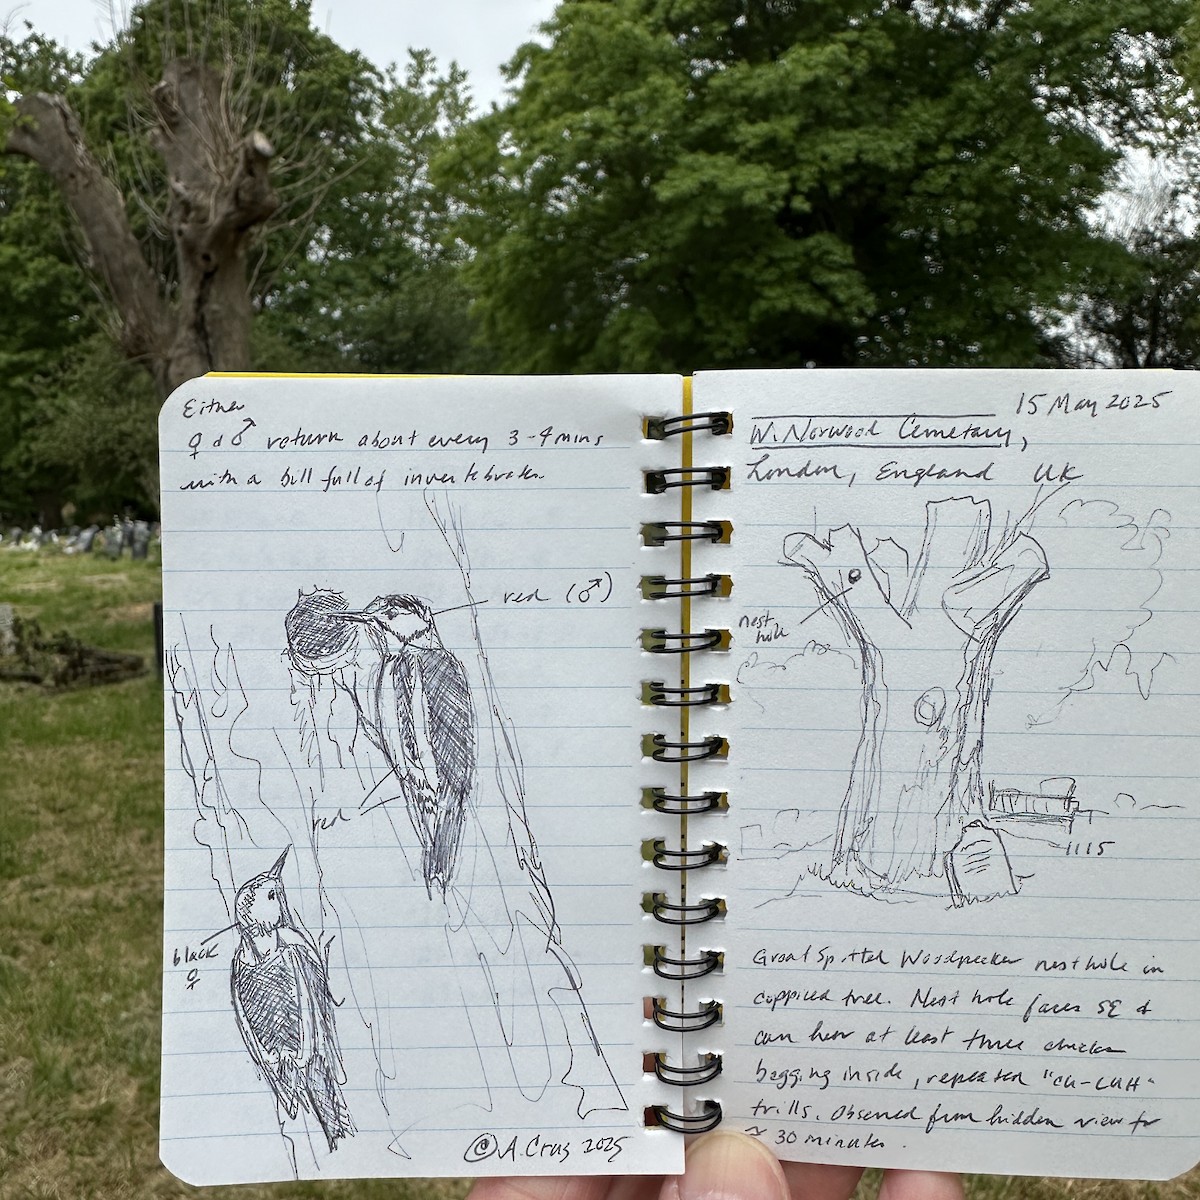 Either
♀ & ♂ return about every 3-4 mins
with a bill full of invertebrates.
red (♂)
red
black
♀
©A. Cruz 2025
15 May 2025
W. Norwood Cemetary,
London, England UK
nest
hole
1115
Great Spotted Woodpecker nest hole in
coppiced tree. Nest hole faces SE &
can hear at least three chicks
begging inside, repeated "CU-CUH"
trills. Observed from hidden view for
≈ 30 minutes.